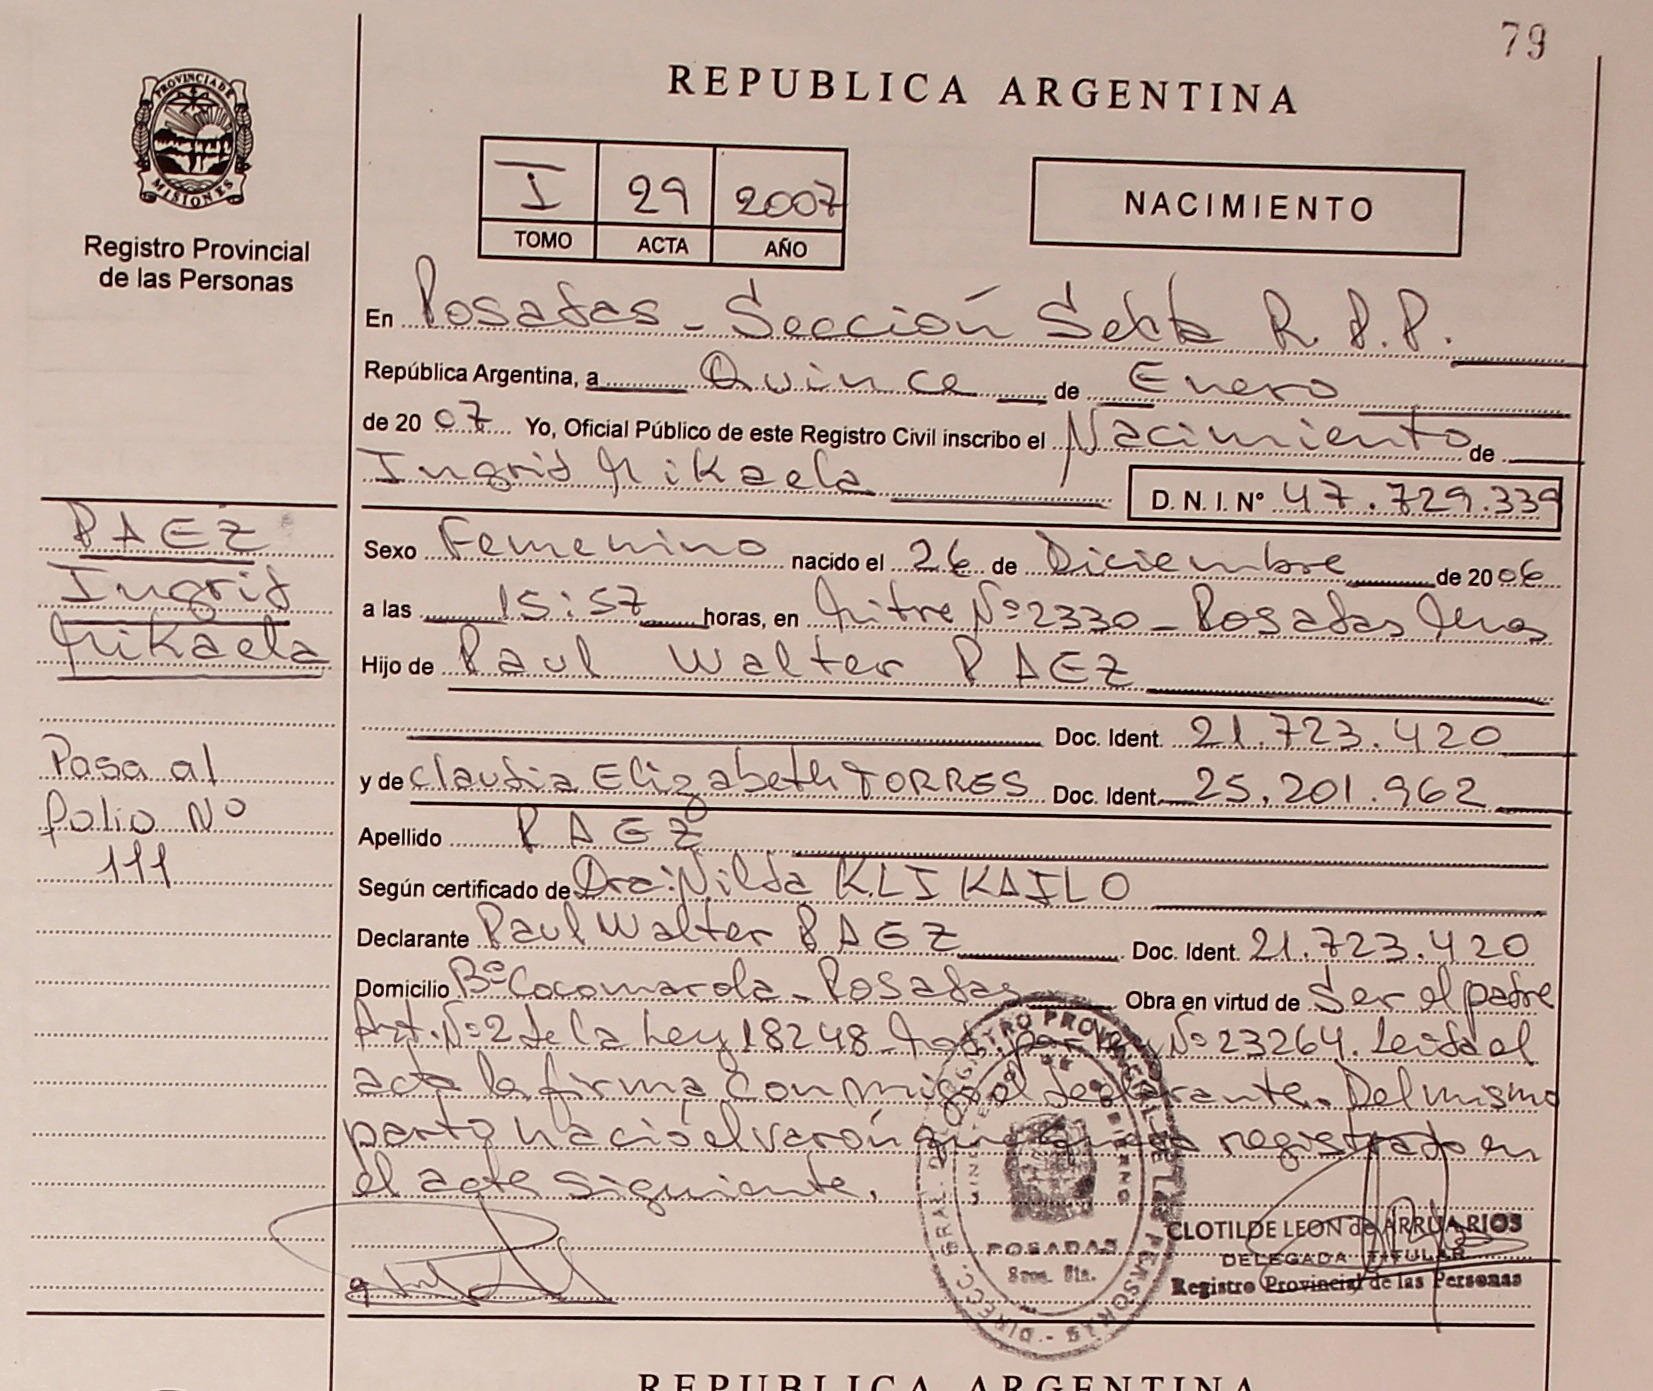 79
REPUBLICA ARGENTINA
PROVINCIA DE
MISIONES
Registro Provincial
de las Personas
I 29 2007
TOMO ACTA AÑO
NACIMIENTO
En Posadas - Sección Sexta R.P.P.
República Argentina, a Quince de Enero
de 2007 Yo, Oficial Público de este Registro Civil inscribo el Nacimiento de
Ingrid Mikaela D.N.I. Nº 47.729.339
PAEZ
Ingrid
Mikaela
Sexo Femenino nacido el 26 de Diciembre de 2006
a las 15:57 horas, en Mitre Nº 2330 - Posadas Mnes
Hijo de Raul Walter PAEZ
Doc. Ident. 21.723.420
y de Claudia Elizabeth TORRES Doc. Ident. 25.201.962
Pasa al
folio Nº
111
Apellido PAEZ
Según certificado de Dra: Nilda KLIKAILO
Declarante Raul Walter PAEZ Doc. Ident. 21.723.420
Domicilio Bº Cocomarola - Posadas Obra en virtud de Ser el padre
Art. Nº 2 de la Ley 18248 por Nº 23264. Leida el
acta la firma conmigo el declarante. Del mismo
parto nació el varón que queda registrado en
el acta siguiente.
DIRECC. GRAL. DEL REGISTRO PROVINCIAL DE LAS PERSONAS
POSADAS
CLOTILDE LEON de ARRUA RIOS
DELEGADA TITULAR
Registro Provincial de las Personas
REPUBLICA ARGENTINA